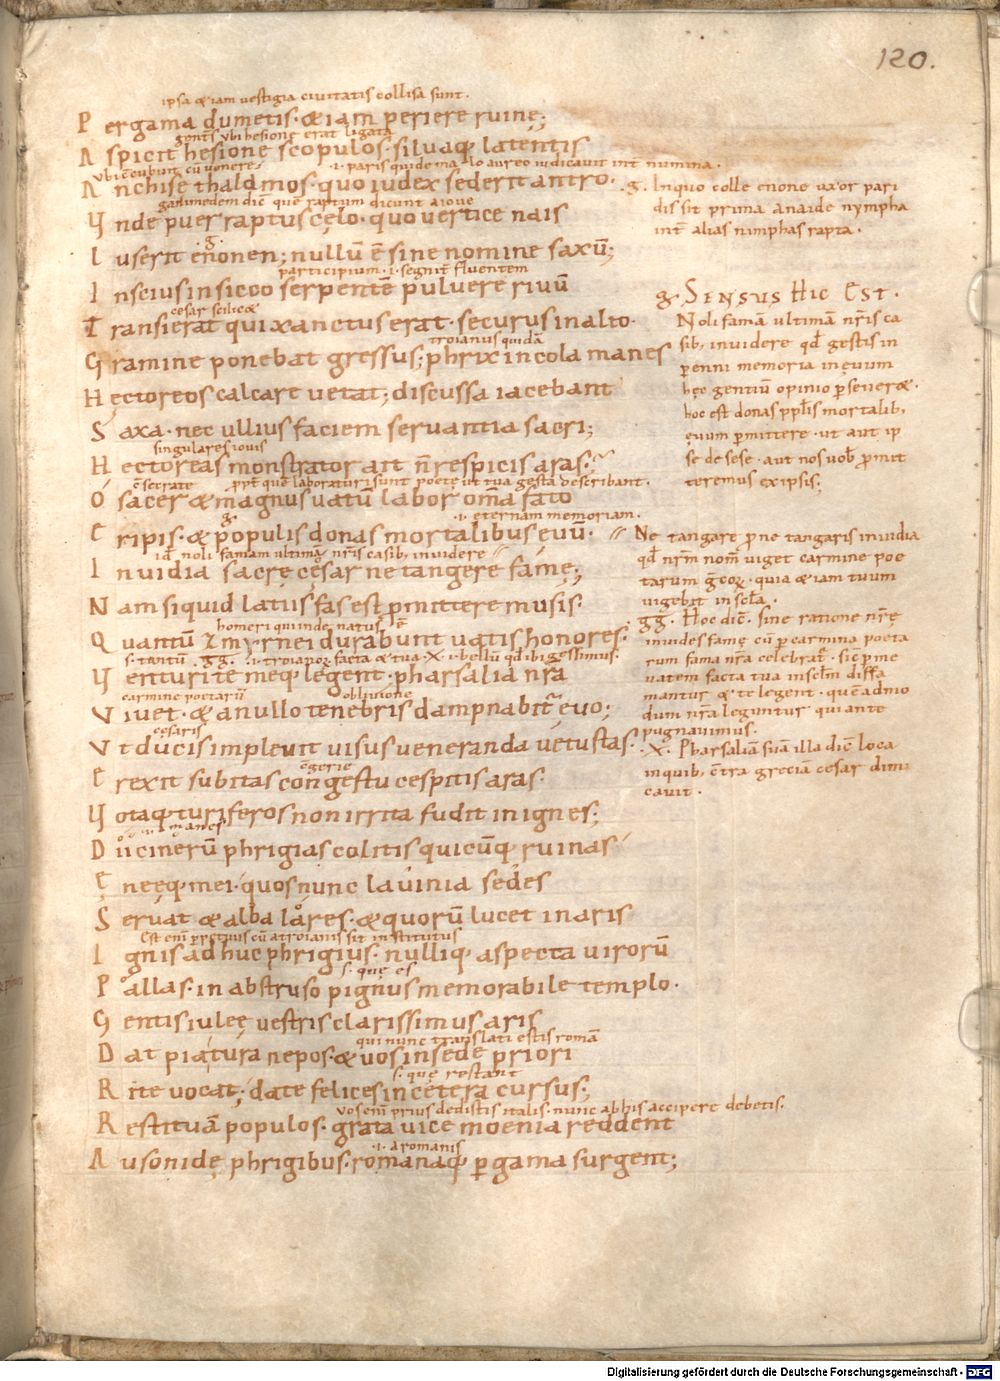 120.
ipsa & iam uestigia ciuitatis collisa sunt.
P ergama dumetis· & iam periere ruinę;
gentis ubi hesione erat ligata
A spicit hesione scopulos· siluaq; latentis
ubi cũ uenere· ·i· paris qui de malo aureo iudicauit int numina.
A nchise thalamos· quo iudex sederit antro· .g.
ganimedem dic̄ que raptum dicunt a ioue
V nde puer raptus cęlo· quo uertice nais
.g.
L userit enonen; nullũ ē sine nomine saxũ;
participium ·i· segnit̄ fluentem
I nscius in sicco serpentē puluere riuũ
cesar scilic&
T ransierat qui xanctus erat· securus in alto·
troianus quidã
G ramine ponebat gressus; phrix incola manes
H ectoreos calcare uetat; discussa iacebant
S axa· nec ullius faciem seruantia sacri;
singulares iouis
H ectoreas monstrator ait ñ respicis aras;
ppt̄ que laboraturi sunt poete ut tua gesta describant.
O sacer & magnus uatũ labor om̄a fato
g. ·i· eternam memoriam.
E ripis· & populis donas mortalibus ęuũ·
id noli famam ultimã nr̄is casib; inuidere
I nuidia sacrę cęsar ne tangere famę;
N am siquid latiis fas est pmittere musis·
homeri qui inde natus ē
Q uantũ zmyrnei durabunt uatis honores·
s· tantũ .gg. ·i· troia por facta & tua ·X· ·i· bellũ qđ ibi gessimus·
V enturi te meq; legent· pharsalia nr̄a
carmine poetarũ obliuione
V iuet· & a nullo tenebris dampnabit̄ ęuo;
cesaris
V t ducis impleuit uisus ueneranda uetustas·
congerie
E rexit subitas congestu cespitis aras·
V otaq; turiferos non irrita fudit in ignes;
·i· manes
D ii cinerũ phrigias colitis quicũq; ruinas
Ę neęq; mei· quos nunc lauinia sedes
S eruat & alba lares· & quorũ lucet in aris
Est em̄ ppetuus cũ a troianis sit institutus
I gnis adhuc phrigius· nulliq; aspecta uirorũ
s· quę es
P allas· in abstruso pignus memorabile templo·
G entis iuleę uestris clarissimus aris
qui nunc translati estis romã
D at pia tura nepos· & uos in sede priori
s· quę restant
R ite uocat; date felices in cetera cursus;
uos em̄ prius dedistis italis· nunc ab his accipere debetis.
R estituã populos· grata uice moenia reddent
·i· a romanis
A usonidę phrigibus· romanaq; pgama surgent;
In quo colle enone uxor pari
dis sit prima a naide nympha
int̄ alias nimphas rapta·
g. SENSUS HIC EST.
Noli famã ultimã nr̄is ca
sib; inuidere qđ gestis in
penni memoria in ęuum
hęc gentiũ opinio pseuer&·
hoc est donas ppl̄is mortalib;
ęuum pmittere· ut aut ip
se de sese· aut nos uob̄ pmit
teremus ex ipsis;
Ne tangare pne tangaris inuidia
qđ nr̄m nom̄ uiget carmine poe
tarum gcoꝝ· quia & iam tuum
uigebit in scl̄a·
gg. Hoc dic̄· sine ratione nr̄ę
inuides famę cũ p carmina poeta
rum fama nr̄a celebrat̄· sic p me
natem facta tua in sclm̄ diffa
mantur & te legent· quẽ admo
dum nr̄a leguntur qui ante
pugnauimus·
·X· Pharsaliam suã illa dic̄ loca
in quib; ctra greciã cesar dimi
cauit.
Digitalisierung gefördert durch die Deutsche Forschungsgemeinschaft - DFG